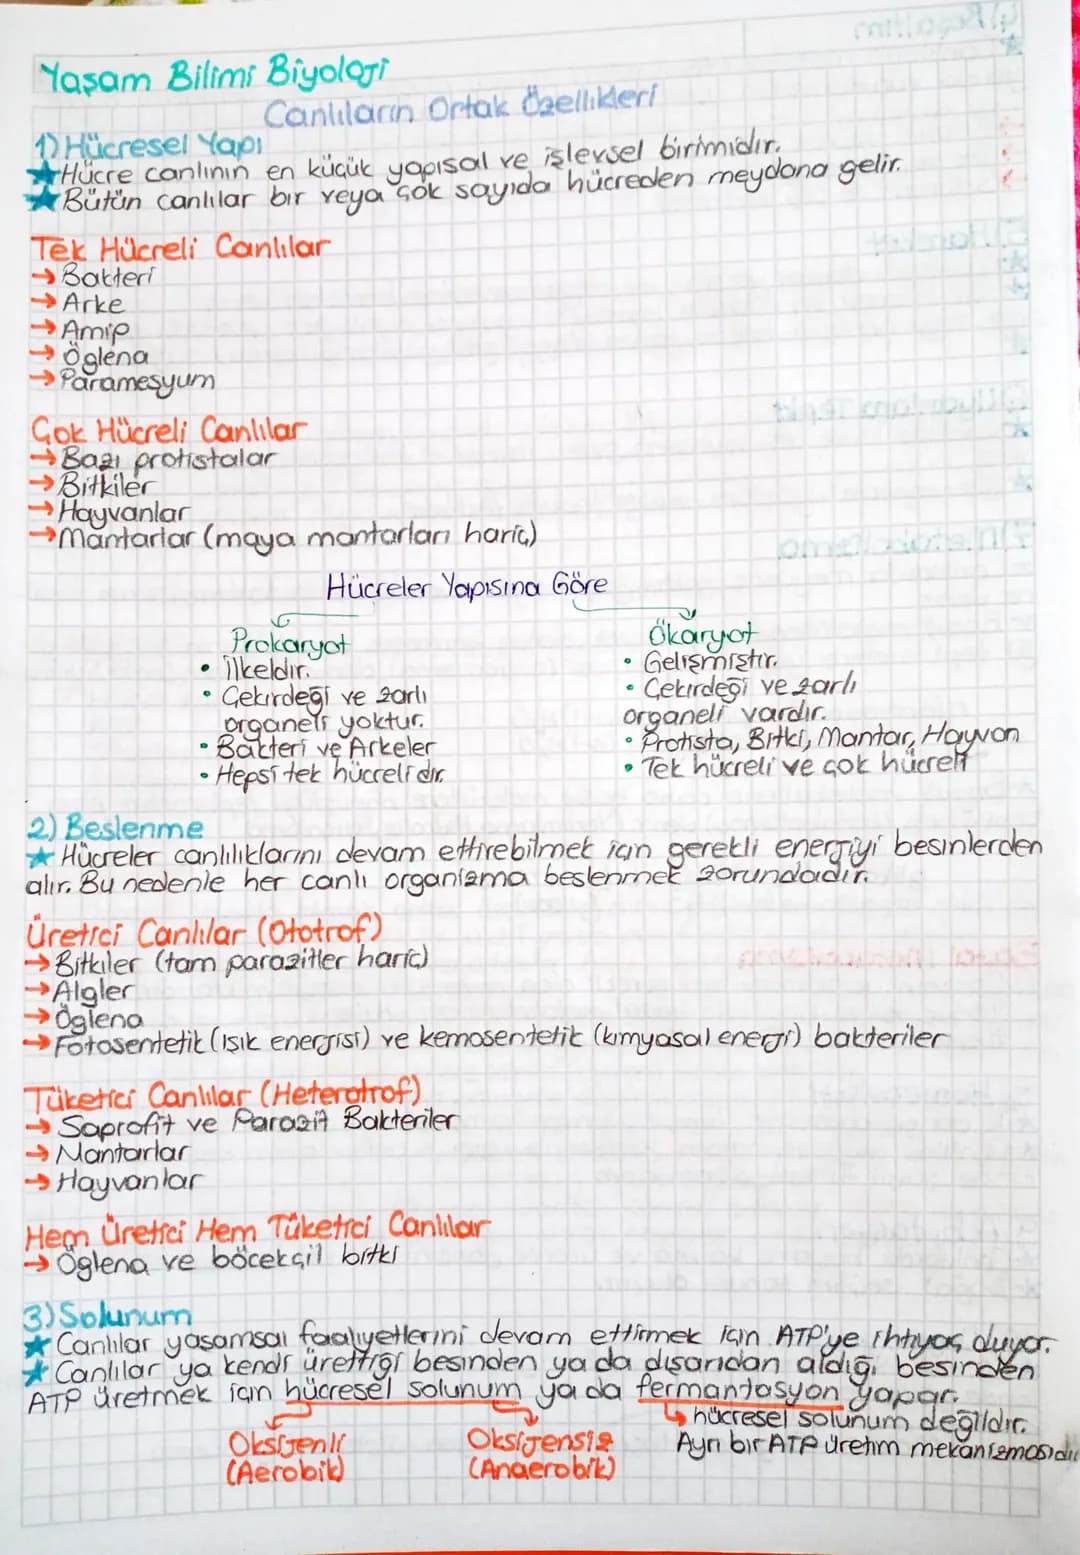 Yaşam Bilimi Biyoloji
Canlıların Ortak Özellikleri
1) Hücresel Yapı
★ Hücre canlının en küçük yapısal ve işlevsel birimidir.
★ Bütün canlılar bir veya çok sayıda hücreden meydana gelir.
Tek Hücreli Canlılar
→ Bakteri
→ Arke
→ Amip
→ Öglena
→ Paramesyum
Çok Hücreli Canlılar
→ Bazı protistalar
→ Bitkiler
→ Hayvanlar
→ Mantarlar (maya mantarları hariç)
Hücreler Yapısına Göre
Prokaryot
• İlkeldir.
• Çekirdeği ve zarlı
organeli yoktur.
• Bakteri ve Arkeler
• Hepsi tek hücrelidir.
Ökaryot
• Gelişmiştir.
• Çekirdeği ve zarlı
organeli vardır.
• Protista, Bitki, Mantar, Hayvan
• Tek hücreli ve çok hücreli
2) Beslenme
★ Hücreler canlılıklarını devam ettirebilmek için gerekli enerjiyi besinlerden
alır. Bu nedenle her canlı organizma beslenmek zorundadır.
Üretici Canlılar (Ototrof)
→ Bitkiler (tam parazitler hariç)
→ Algler
→ Öglena
→ Fotosentetik (ışık enerjisi) ve kemosentetik (kimyasal enerji) bakteriler
Tüketici Canlılar (Heterotrof)
→ Saprofit ve Parazit Bakteriler
→ Mantarlar
→ Hayvanlar
Hem Üretici Hem Tüketici Canlılar
→ Öglena ve böcekçil bitki
3) Solunum
★ Canlılar yaşamsal faaliyetlerini devam ettirmek için ATP'ye ihtiyaç duyar.
★ Canlılar ya kendi ürettiği besinden ya da dışarıdan aldığı besinden
ATP üretmek için hücresel solunum ya da fermantasyon yapar.
Oksijenli
(Aerobik)
Oksijensiz
(Anaerobik)
↳ hücresel solunum değildir.
Ayrı bir ATP üretim mekanizmasıdır